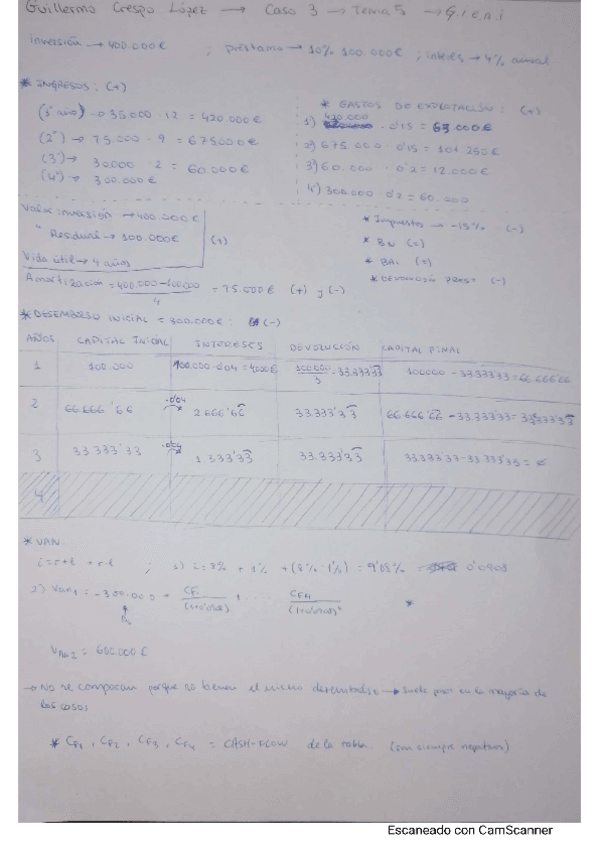 Guillermo Crespo López → Caso 3 → Tema 5 → G.I E.N.I
inversión → 400.000€ ; préstamo → 10% 100.000€ ; interés → 4% anual
* INGRESOS: (+)
(1º año) → 035.000 · 12 = 420.000€
(2º) → 75.000 · 9 = 675000€
(3º) → 30.000 · 2 = 60.000€
(4º) → 300.000€
* GASTOS DE EXPLOTACIÓN: (+)
1) 420.000 · 0'15 = 63.000€
2) 675 000 · 0'15 = 101 250€
3) 60.000 · 0'2 = 12.000€
4) 300.000 0'2 = 60.000
Valor inversión → 400.000€
" Residual → 100.000€ (+)
Vida útil → 4 años
Amortización = 400.000 - 100.000 / 4 = 75.000€ (+) y (-)
* Impuestos → -15% (-)
* BN (=)
* BAI (=)
* DEVOLUCIÓN PREST (-)
* DESEMBOLSO INICIAL = 300.000€: (-)
AÑOS CAPITAL INICIAL INTERESES DEVOLUCIÓN CAPITAL FINAL
1 100.000 100.000·0'04 = 4000€ 100.000/3 = 33.333'33 100000 - 33.333'33 = 66.666'66
2 66.666'66 ·0'04 2.666'66 33.333'33 66.666'66 - 33.333'33 = 33.333'33
3 33.333'33 ·0'04 1.333'33 33.333'33 33.333'33 - 33.333'33 =
4
* VAN:
i = r+h + r·h ; 1) i = 8% + 1% + (8% · 1%) = 9'08% = 0'0908
2) Van1 = -300.000 + CF1/(1+0'0908) + .... CF4/(1+0'0908)⁴ *
VAN2 = 600.000€
→ No se comparan porque no tienen el mismo desembolso → suele pasar en la mayoría de
los casos
* CF1, CF2, CF3, CF4 = CASH-FLOW de la tabla. (son siempre negativos)
Escaneado con CamScanner